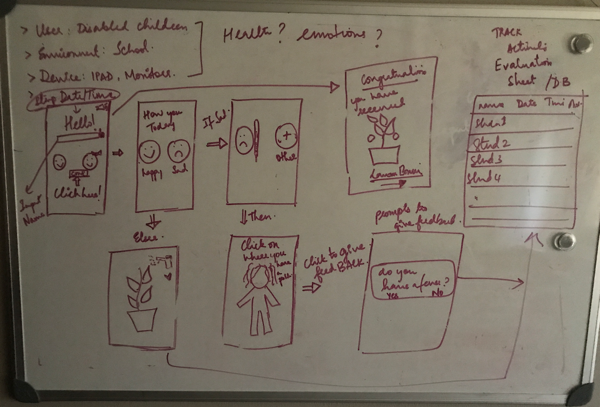 > User: Disabled children
> Environment: School.
> Device: IPAD, Monitors.
Health? emotions?
stamp Date/Time
Hello!
Click here!
Input
Name
How you
Today
happy Sad
If Sad
other
Congratulations
you have
received
Lemon Bonsai
TRACK
Activities
Evaluation
Sheet /DB
name Date Time
Stud 1
Stud 2
Stud 3
Stud 4
Else
Then
Click on
where you
have
pain
Click to give
feedBACK.
prompts to
give feedback.
do you
have a fever?
YES NO